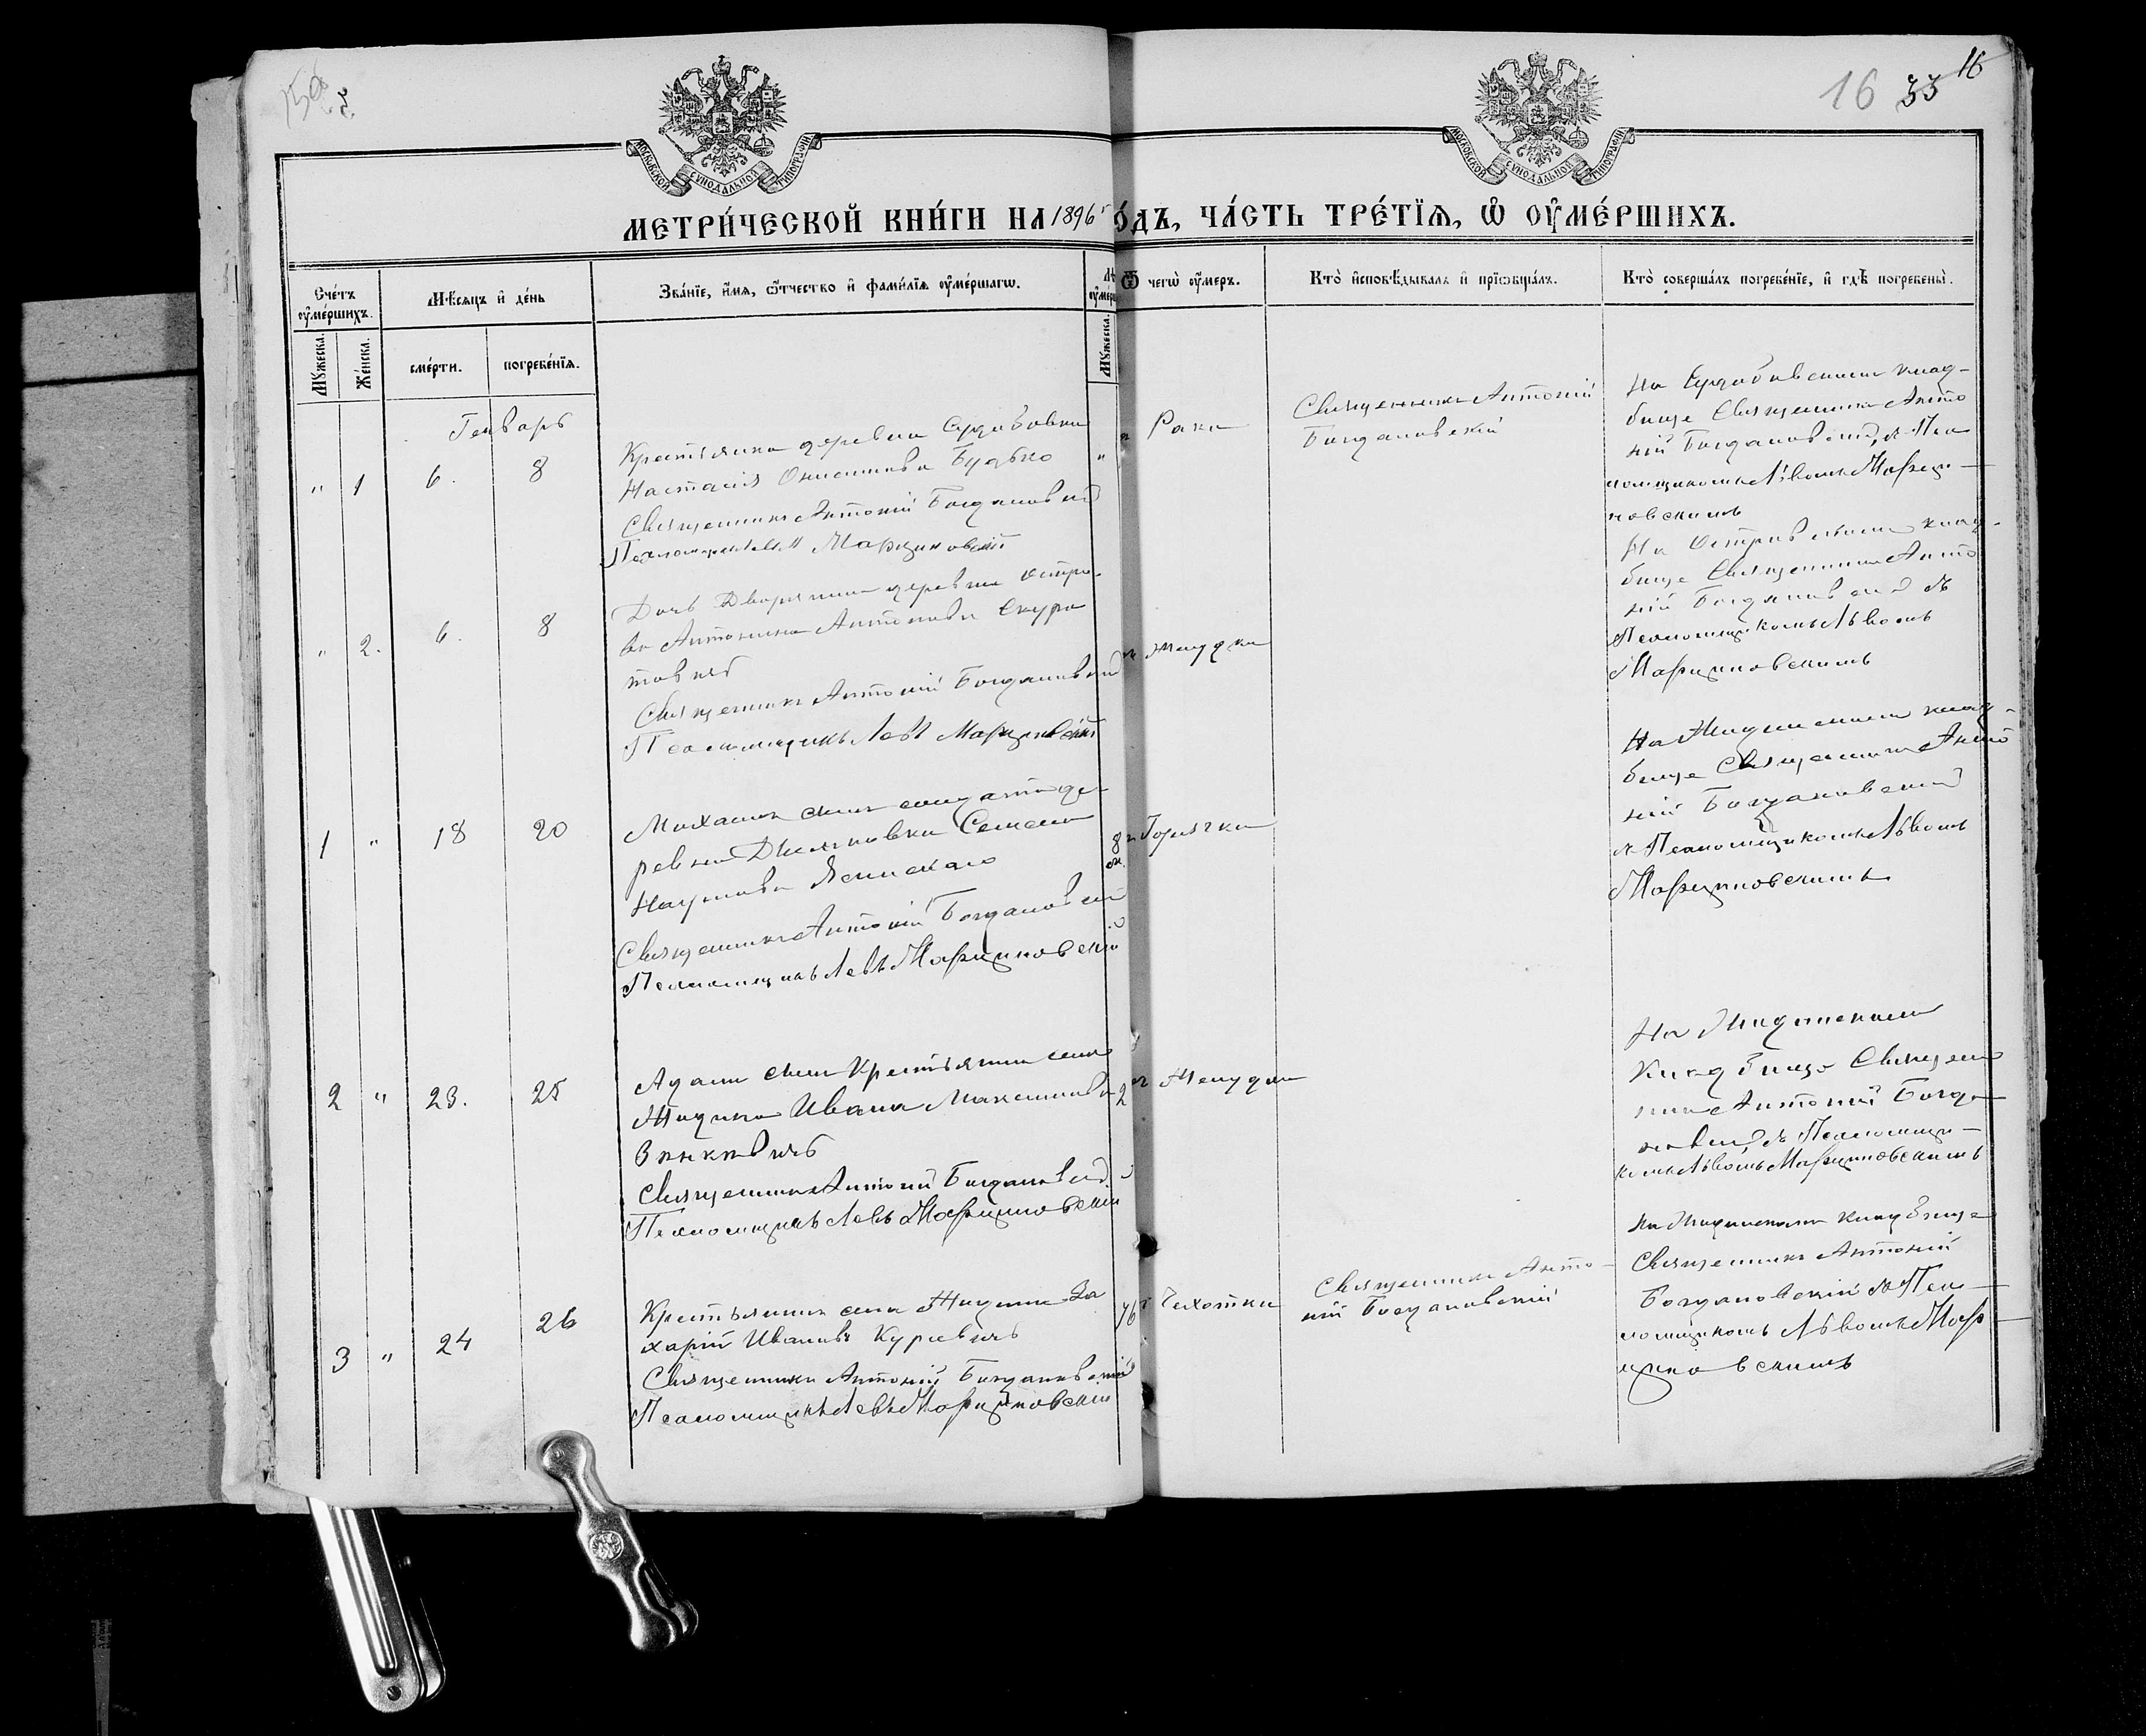 16 33 16
МОСКОВСКОЙ СѴНОДАЛЬНОЙ ТИПОГРАФІИ
МОСКОВСКОЙ СѴНОДАЛЬНОЙ ТИПОГРАФІИ
МЕТРИ́ЧЕСКОЙ КНИ́ГИ НА 1896 г О́ДЪ, ЧА́СТЬ ТРЕ́ТЇѦ, Ѿ ОУ҆МЕ́РШИХЪ.
Сче́тъ оу҆ме́ршихъ.
Мꙋжеска.
Же́нска.
Мѣ́сѧцъ и҆ де́нь
сме́рти.
погребе́нїѧ.
Зва́нїе, и҆́мѧ, ѻ҆́тчество и҆ фами́лїѧ оу҆ме́ршагѡ.
Мꙋжеска.
Ѿ чегѡ̀ оу҆́меръ.
Кто̀ и҆сповѣ́дывалъ и҆ прїѡбща́лъ.
Кто̀ соверша́лъ погребе́нїе, и҆ гдѣ̀ погребены̀.
Генварь
" 1 6. 8
Крестьянка деревни
Настасія Будько
Священникъ Антоній Богдановскій
Псаломщикъ Левъ Марциновскій
Рака
Священникъ Антоній
Богдановскій
На клад-
бище Священникъ Анто
ній Богдановскій съ Пса
ломщикомъ Львомъ Марци-
новскимъ
" 2. 6. 8
Дочь Дворянина деревни Остро-
ва Антонина Антонова Скура
товичъ
Священникъ Антоній Богдановскій
Псаломщикъ Левъ Марциновскій
На Островскомъ клад-
бище Священникъ Анто
ній Богдановскій съ
Псаломщикомъ Львомъ
Марциновскимъ
1 " 18 20
Михаилъ сынъ солдата де-
ревни Семена
Наумова
Священникъ Антоній Богдановскій
Псаломщикъ Левъ Марциновскій
8 м.
Горячка
На клад-
бище Священникъ Анто
ній Богдановскій
съ Псаломщикомъ Львомъ
Марциновскимъ
2 " 23. 25
Адамъ сынъ Крестьянина села
Ивана Максимова
Священникъ Антоній Богдановскій
Псаломщикъ Левъ Марциновскій
2
На
Кладбище Священ
никъ Антоній Богда
новскій съ Псаломщи-
комъ Львомъ Марциновскимъ
3 " 24 26
Крестьянинъ села За
харій Ивановъ Куревичъ
Священникъ Антоній Богдановскій
Псаломщикъ Левъ Марциновскій
76
Чахотки
Священникъ Анто-
ній Богдановскій
На кладбище
Священникъ Антоній
Богдановскій съ Пса-
ломщикомъ Львомъ Мар-
циновскимъ